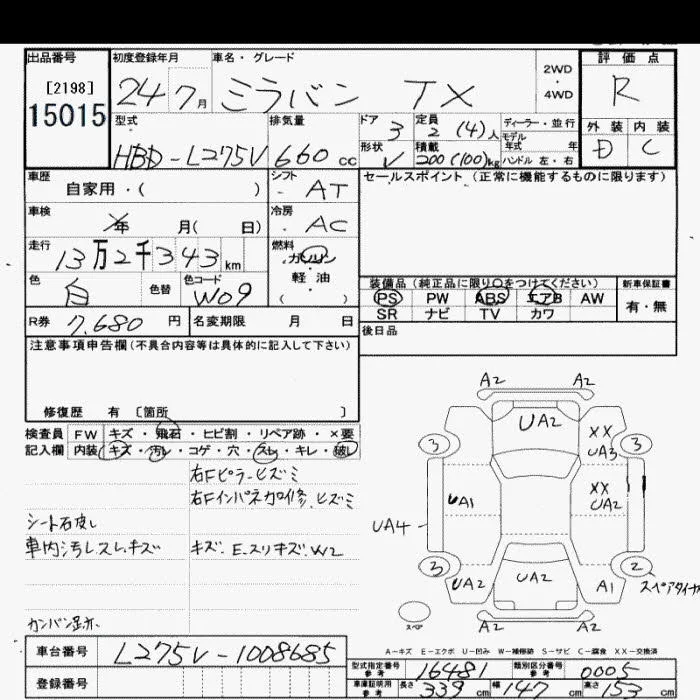 出品番号
[2198]
15015
初度登録年月
24 7月
車名・グレード
ミラバン TX
2WD
・
4WD
評価点
R
型式
HBD-L275V
排気量
660 cc
ドア
3
形状
V
定員
2 (4)人
積載
200(100)kg
ディーラー・並行
モデル
年式 年
ハンドル 左・右
外装 内装
D C
車歴
自家用・( )
シフト
AT
セールスポイント (正常に機能するものに限ります)
車検
年 月( 日)
冷房
AC
走行
13万2千343km
燃料
ガソリン
軽・油
( )
色
白
色替
色コード
W09
装備品(純正品に限り○をつけてください)
PS PW ABS エアB AW
SR ナビ TV カワ
新車保証書
有・無
R券 7,680円
名変期限 月 日
後日品
注意事項申告欄(不具合内容等は具体的に記入して下さい)
修復歴 有 〔箇所 〕
検査員
記入欄
FW キズ・飛石・ヒビ割・リペア跡・×要
内装 キズ・汚レ・コゲ・穴・スレ・キレ・破レ
右Fピラーヒズミ
右Fインパネ加修、ヒズミ
シート破レ
車内汚レスレ、キズ
キズ、E、スリキズ、W2
A2 A2
UA2
3 XX 3
UA3
UA1 XX
UA2
UA4
3 2
UA2 UA2 A1 スペアタイヤ
A2 A2
スペア
A-キズ E-エクボ U-凹み W-補修跡 S-サビ C-腐食 XX-交換済
車台番号 L275V-1008685
登録番号
型式指定番号
参考
16481
類別区分番号
参考
0005
車庫証明用
参考
長さ 339cm 幅 147cm 高さ 153cm